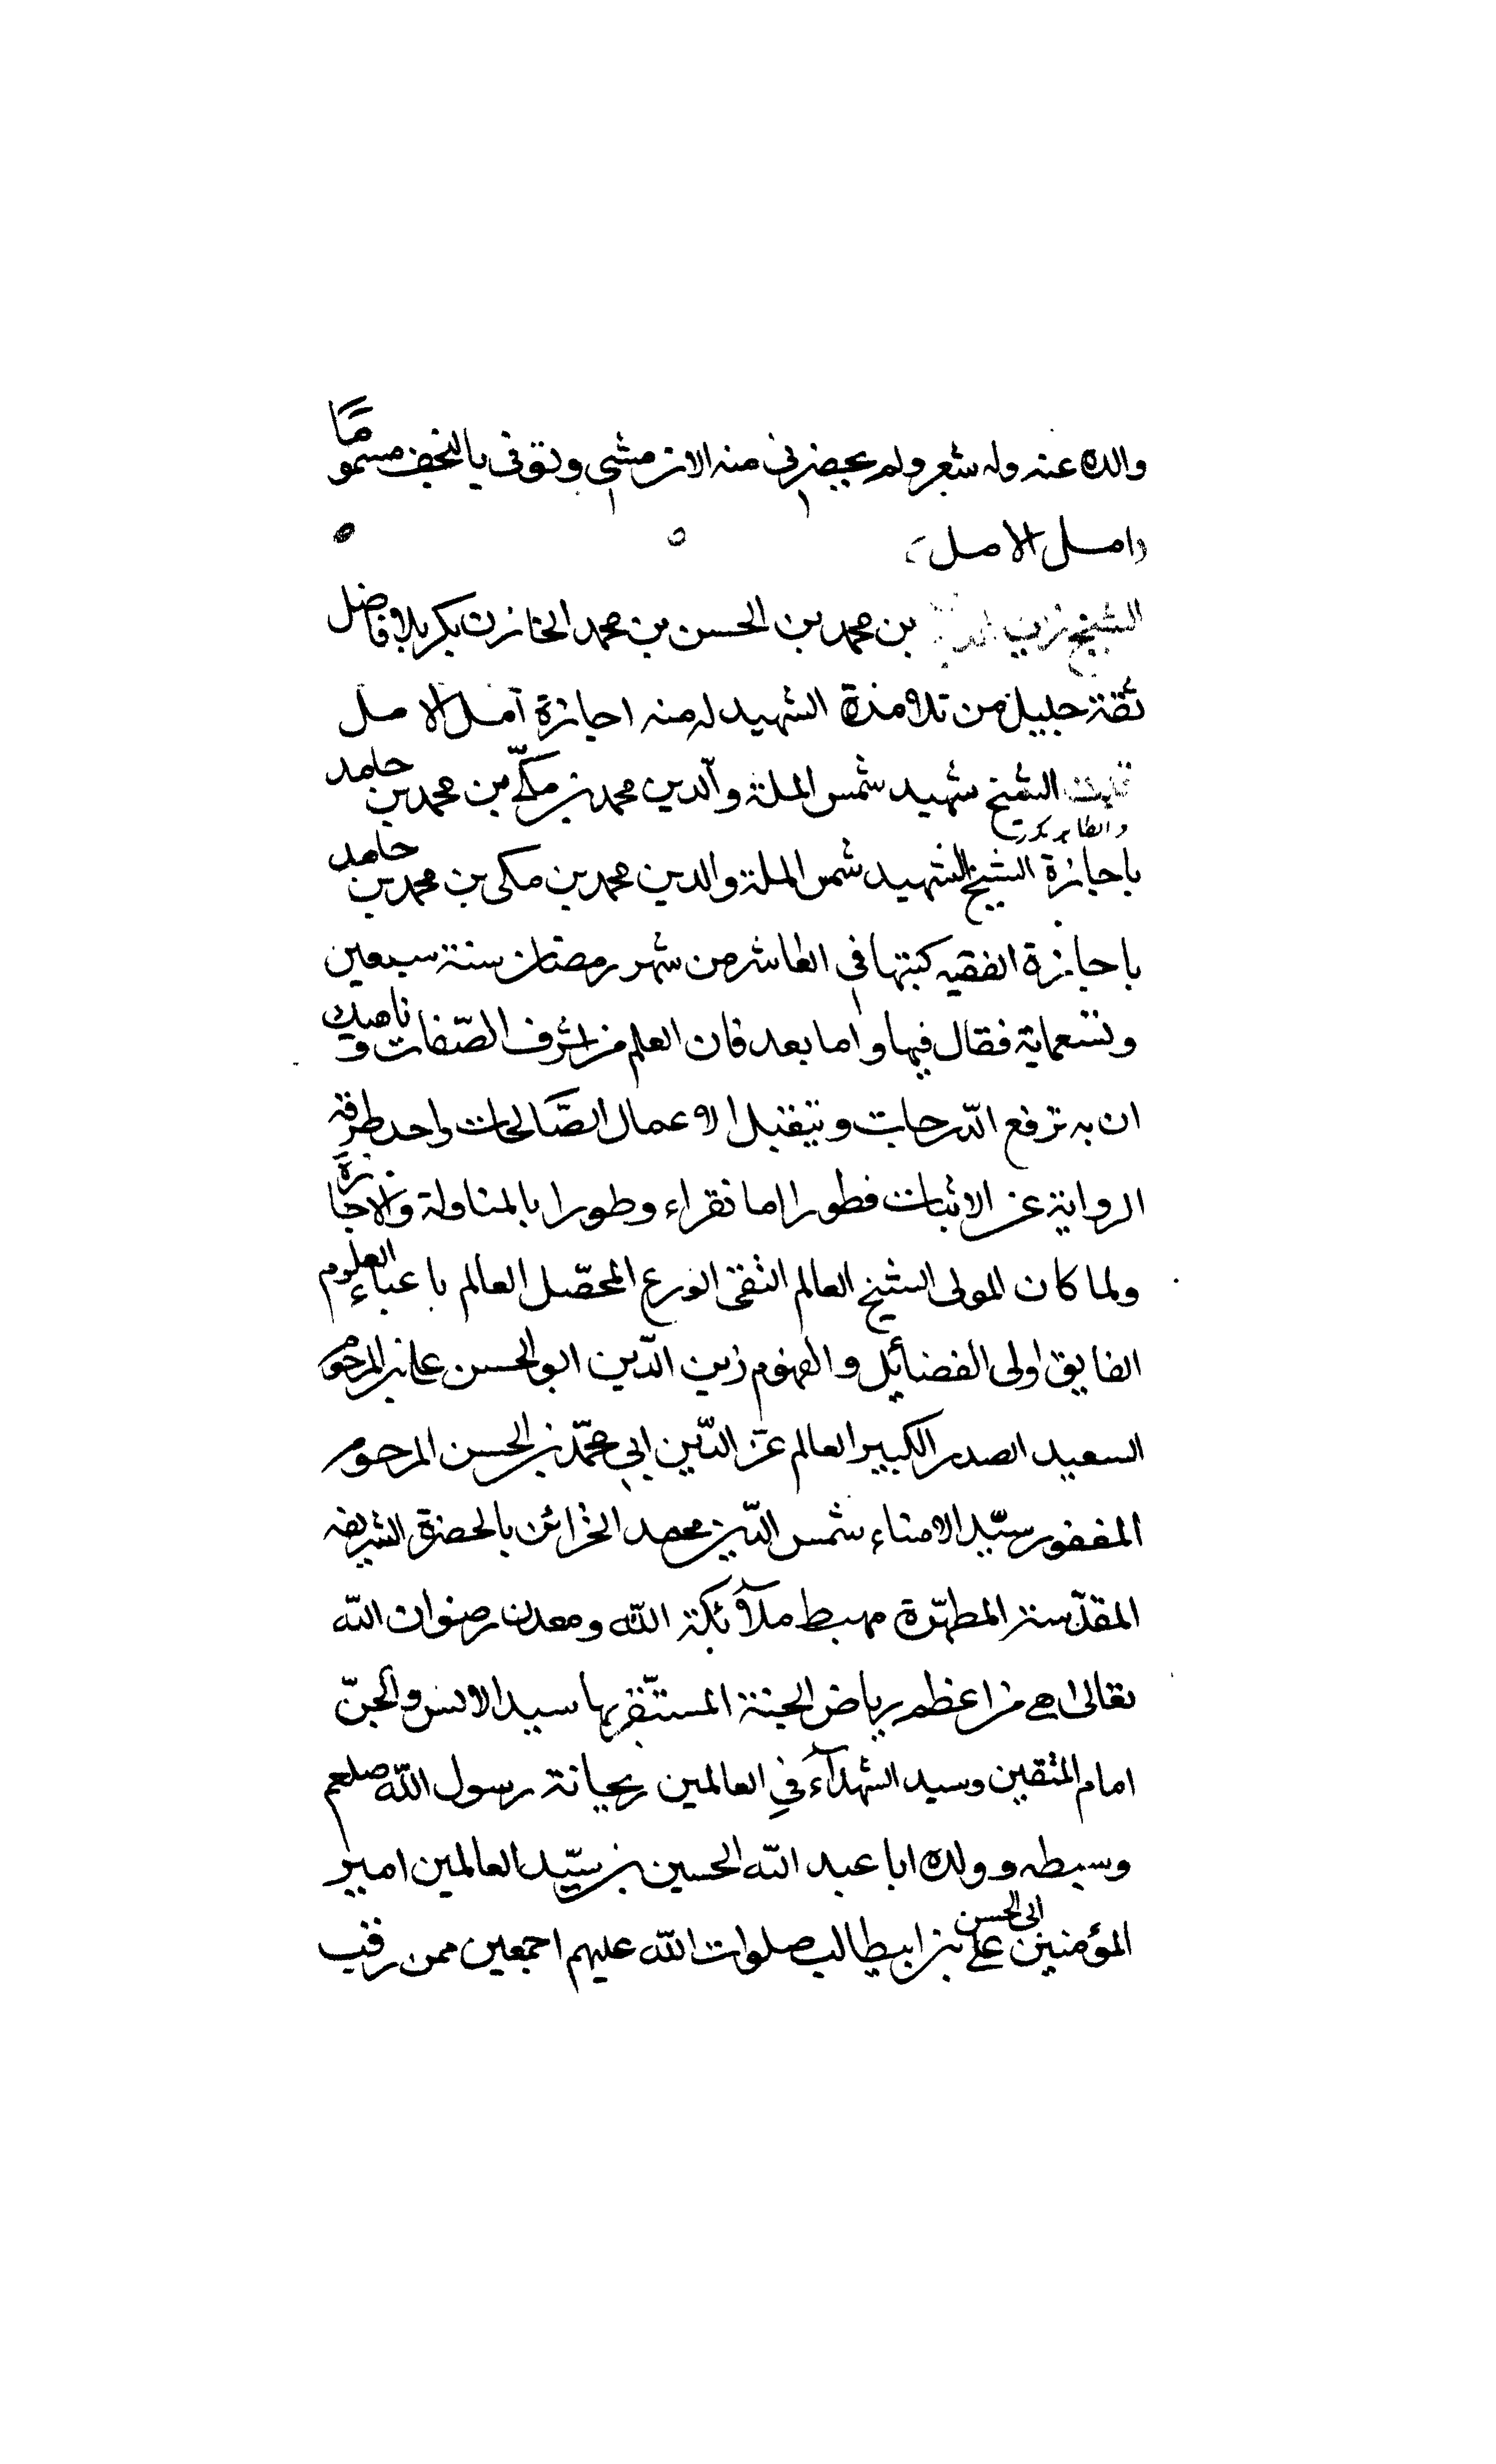 والده عنه وله شعر ولم يحضرني منه الان شي وتوفى بالنجف مسموما
(امل الامل)
الشيخ زين بن محمد بن الحسن بن محمد الخازن بكربلا فاضل
ثقة جليل من تلامذة الشهيد له منه اجازة آمل الامل
الشيخ شهيد شمس الملة والدين محمد بن مكّي بن محمد بن حامد
باجازة الشيخ الشهيد شمس الملة والدين محمد بن مكى بن محمد بن حامد
باجازة الفقيه كتبتها في العاشر من شهر رمضان سنة سبعين
وتسعماية فقال فيها واما بعد فان العلم من اشرف الصّفات وناهيك
ان به ترفع الدّرجات وتتقبل الاعمال الصَّالحات واحد طرقه
الرواية عن الاثبات فطورا اما نقراء وطورا بالمناولة والاجازة
ولما كان المولى الشيخ العالم التقى الورع المحصّل العالم باعباء العلوم
الفايق اولى الفضائل والفهوم زين الدّين ابو الحسن على بن المرحوم
السعيد الصدر الكبير العالم عزّ الدّين ابي محمّد بن الحسن المرحوم
المغفور سيّد الامناء شمس الدّين محمد الخزائن بالحضرة الشريفه
المقدّسة المطهّرة مهبط ملآئكة اللّه ومعدن رضوان اللّه
تعالى اهي من اعظم رياض الجنة المستّقر بها سيد الانس والجنّ
امام المتقين وسيد الشهدآء في العالمين ريحانة رسول اللّه صلعم
وسبطه وولده ابا عبد اللّه الحسين بن سيّد العالمين امير
المؤمنين ابى الحسن على بن ابيطالب صلوات اللّه عليهم اجمعين ممن رقب